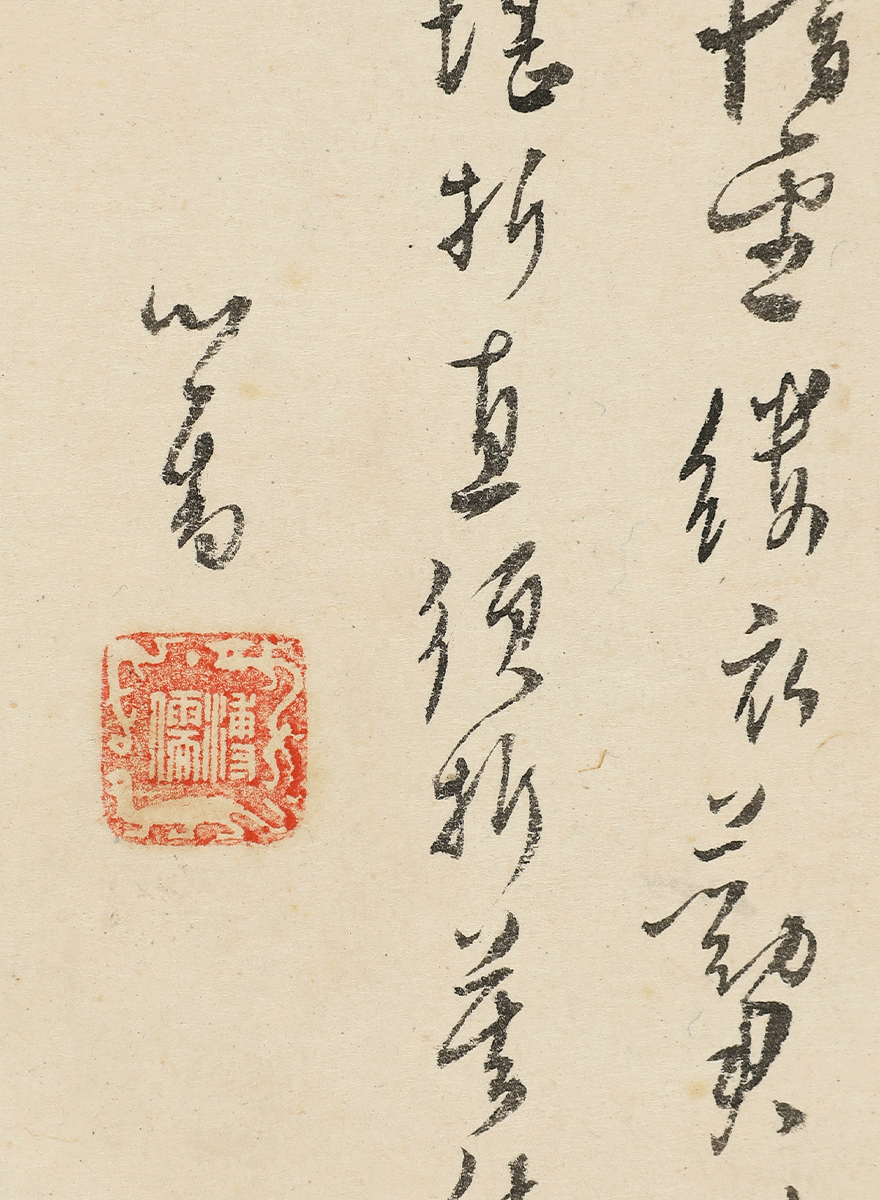 惜金縷衣勸君
堪折直須折莫待
心畬
溥儒